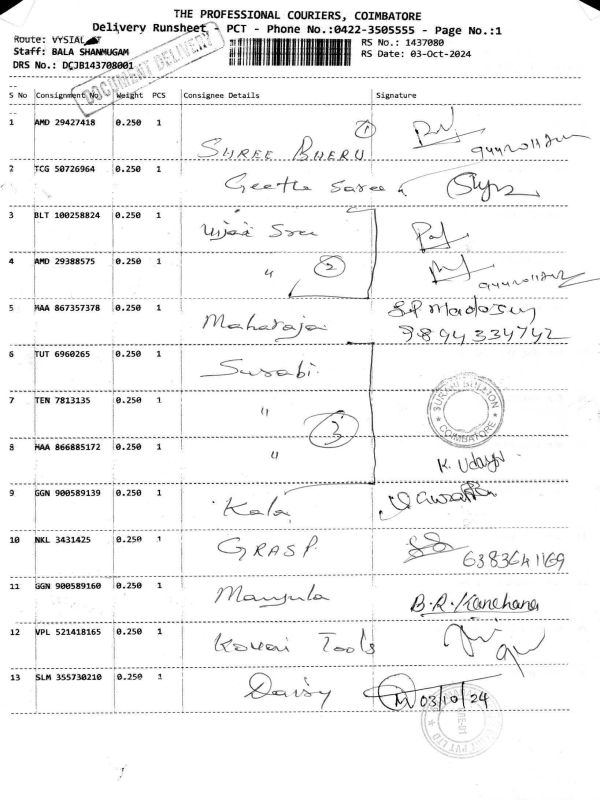 THE PROFESSIONAL COURIERS, COIMBATORE
Delivery Runsheet - PCT - Phone No.:0422-3505555 - Page No.:1
Route: VYSIAL
RS No.: 1437080
Staff: BALA SHANMUGAM
RS Date: 03-Oct-2024
DRS No.: DCJB143708001
DOCUMENT DELIVERY
S No Consignment No. Weight PCS Consignee Details Signature
1 AMD 29427418 0.250 1 SHREE BHERU 1
2 TCG 50726964 0.250 1 Geetha Saree
3 BLT 100258824 0.250 1 Sree
4 AMD 29388575 0.250 1 " 2
5 MAA 867357378 0.250 1 Maharaja
9894334742
6 TUT 6960265 0.250 1 Surabi
7 TEN 7813135 0.250 1 " 3
SURABI BULLION COIMBATORE
8 MAA 866885172 0.250 1 " K. Udaya
9 GGN 900589139 0.250 1 Kala
10 NKL 3431425 0.250 1 GRASP
11 GGN 900589160 0.250 1 Manjula B.R. Kanchana
12 VPL 521418165 0.250 1 Kovai Tools
13 SLM 355730210 0.250 1 Daisy 03/10/24